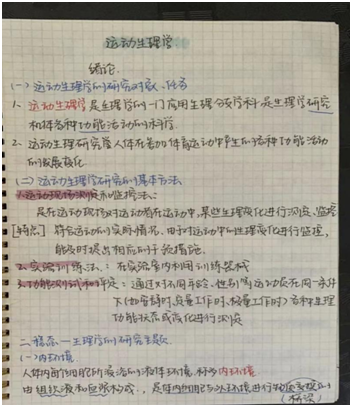 运动生理学
绪论.
(一)运动生理学的研究对象、任务
1、运动生理学是生理学的一门应用生理分支学科是生理学研究
机体各种功能活动的科学.
2、运动生理研究是人体在参加体育运动中产生的各种功能活动
的发展变化
(二)运动生理学研究的基本方法
1.运动现场测试和监控法:
是在运动现场对运动者在运动中,某些生理变化进行测定、监控
[特点] 符合运动的实际情况,由于对运动中的生理变化进行监控,
能及时提出相应的干预措施.
2.实验训练法:在实验室内利用训练器械
3.功能测试和评定:通过对不同年龄、性别
下(如安静时,负量工作时、极量工作时)各种生理
功能状态或变化进行测定
二、稳态—生理学的研究主题
(一)内环境
人体内每个细胞的液浴的液体环境,称为内环境
由组织液和血浆构成,是体内细胞与外环境进行物质交换的
(桥梁)